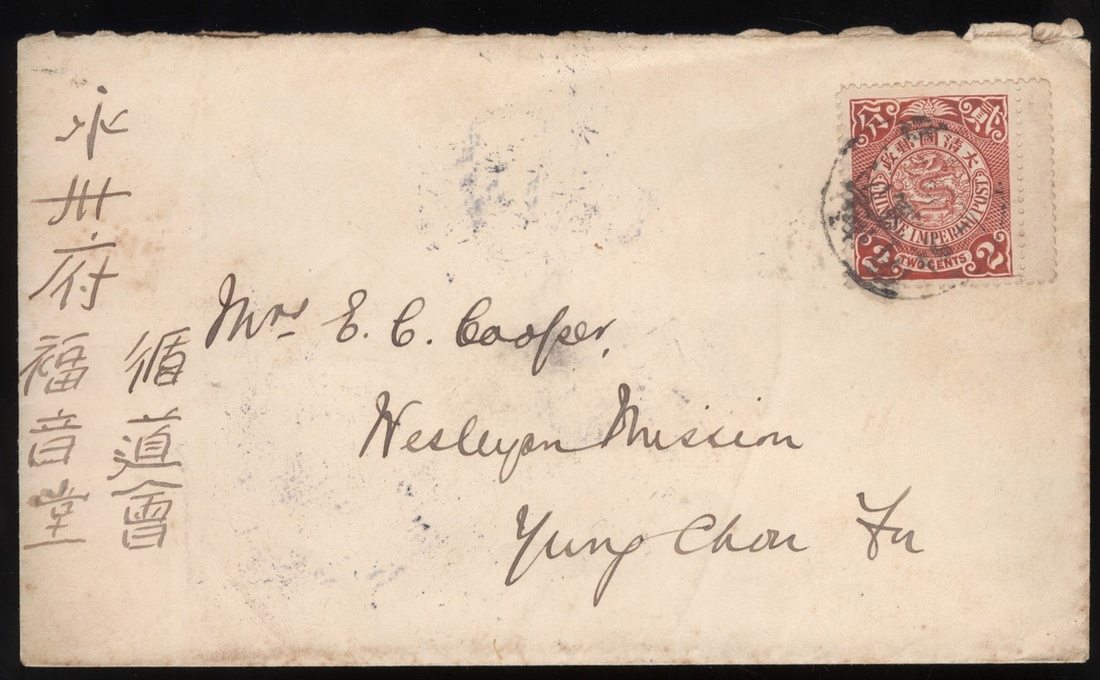 永州府福音堂
循道會
分 貳
大清國郵政
CHINESE IMPERIAL POST
2 TWO CENTS 2
Mrs E. C. Cooper,
Wesleyan Mission
Yung Chou Fu